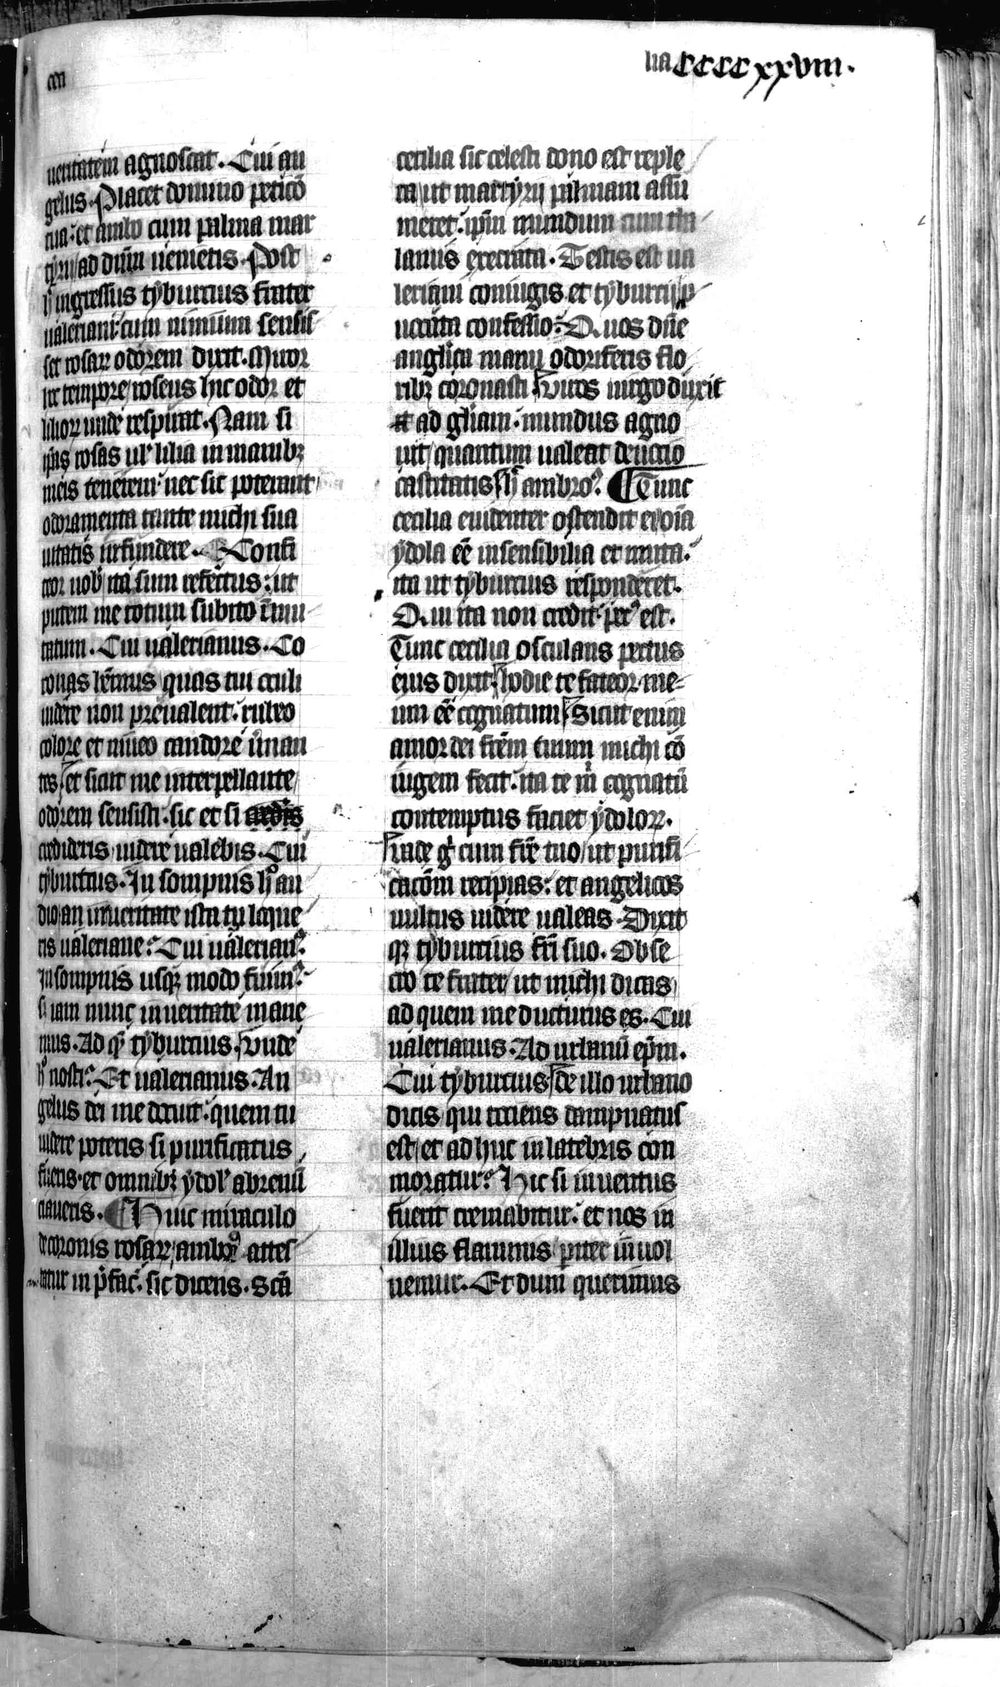 cen
lia CCCCxxviii.
ueritatem agnoscat. Cui an
gelus. Placet domino peticō
tua: et ambo cum palma mar
tyrij ad dn̄m uenietis. Post
h̄ ingressus tyburcius frater
ualeriani: cum nimium sensis
set rosaꝝ odorem dixit. Miror
hoc tempore roseus hic odor et
lilioꝝ unde respirat. Nam si
ip̄as rosas uel lilia in manibꝫ
meis tenerem: nec sic poterant
odoramenta tante michi sua
uitatis infundere. Confi
teor uob̄ ita sum refectus: ut
putem me totum subito īmu
tatum. Cui ualerianus. Co
ronas habemus quas tui oculi
uidere non preualent: rubeo
colore et niueo candore uernan
tes: et sicut me interpellante
odorem sensisti: sic et si
credideris uidere ualebis. Cui
tyburtius. In sompnis h̄ au
dio an in ueritate ista tu loque
ris ualeriane? Cui ualerianꝰ.
In sompnis usqꝫ modo fuimꝰ:
si iam nunc in ueritate mane
mus. Ad qd̄ tyburcius. Vnde
h̄ nosti? Et ualerianus. An
gelus dei me docuit: quem tu
uidere poteris si purificatus
fueris. et omnibꝫ ydol' abrenū
ciaueris. Huic miraculo
de coronis rosaꝝ ambroꝰ attes
tatur in p̄fac̄. sic dicens. Scā
cecilia sic celesti dono est reple
ta ut martyrij palmam assu
meret: ip̄m mundum cum tha
lamis execrata. Testis est ua
leriani coniugis et tyburcij p
uocata confessio: Quos dn̄e
anglica manu odoriferis flo
ribꝫ coronasti. Viros uirgo duxit
ad gl̄iam: mundus agno
uit quantum ualeat deuocio
castitatis. h̄ ambroꝰ. Tunc
cecilia euidenter ostendit ei oīa
ydola eē insensibilia et muta:
ita ut tyburcius responderet.
Qui ita non credit: pecꝰ est.
Tunc cecilia osculans pectus
eius dixit. hodie te fateor me
um eē cognatum. Sicut enim
amor dei fr̄em tuum michi cō
iugem fecit: ita te m̄ cognatū
contemptus faciet ydoloꝝ.
Vade g̊ cum fr̄e tuo ut purifi
cacōm recipias: et angelicos
uultus uidere ualeas. Dixit
qꝫ tyburcius fr̄i suo. Obse
cro te frater ut michi dicas
ad quem me ducturus es. Cui
ualerianus. Ad urbanū ep̄m.
Cui tyburcius. de illo urbano
dicis qui tociens dampnatus
est et adhuc in latebris con
moratur? Hic si inuentus
fuerit cremabitur: et nos in
illius flammis pariter inuol
uemur. Et dum querimus